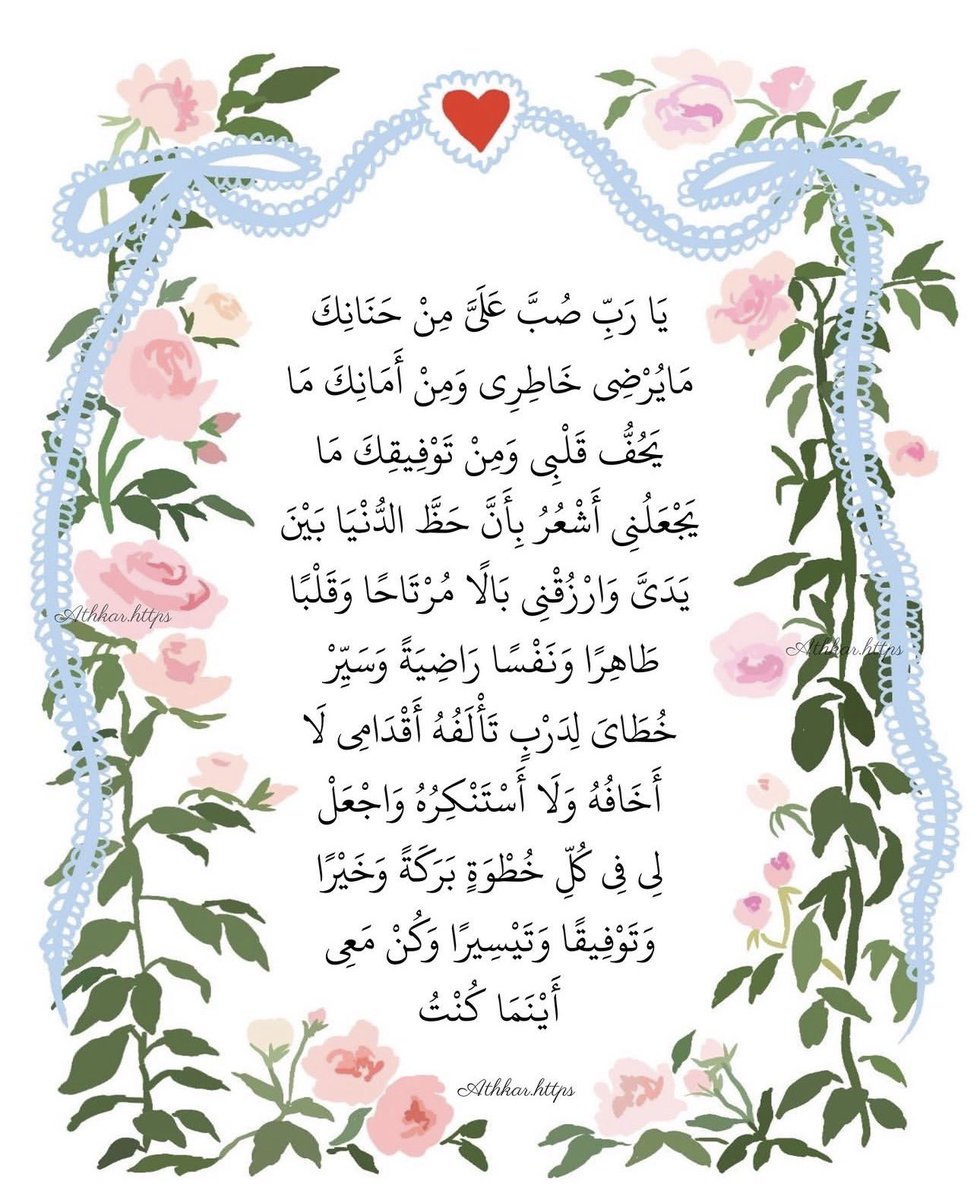 يَا رَبِّ صُبَّ عَلَىَّ مِنْ حَنَانِكَ
مَايُرْضِى خَاطِرِى وَمِنْ أَمَانِكَ مَا
يَحُفُّ قَلْبِى وَمِنْ تَوْفِيقِكَ مَا
يَجْعَلُنِى أَشْعُرُ بِأَنَّ حَظَّ الدُّنْيَا بَيْنَ
يَدَىَّ وَارْزُقْنِى بَالًا مُرْتَاحًا وَقَلْبًا
طَاهِرًا وَنَفْسًا رَاضِيَةً وَسَيِّرْ
خُطَاىَ لِدَرْبٍ تَأْلَفُهُ أَقْدَامِى لَا
أَخَافُهُ وَلَا أَسْتَنْكِرُهُ وَاجْعَلْ
لِى فِى كُلِّ خُطْوَةٍ بَرَكَةً وَخَيْرًا
وَتَوْفِيقًا وَتَيْسِيرًا وَكُنْ مَعِى
أَيْنَمَا كُنْتُ
Athkar.https
Athkar.https
Athkar.https